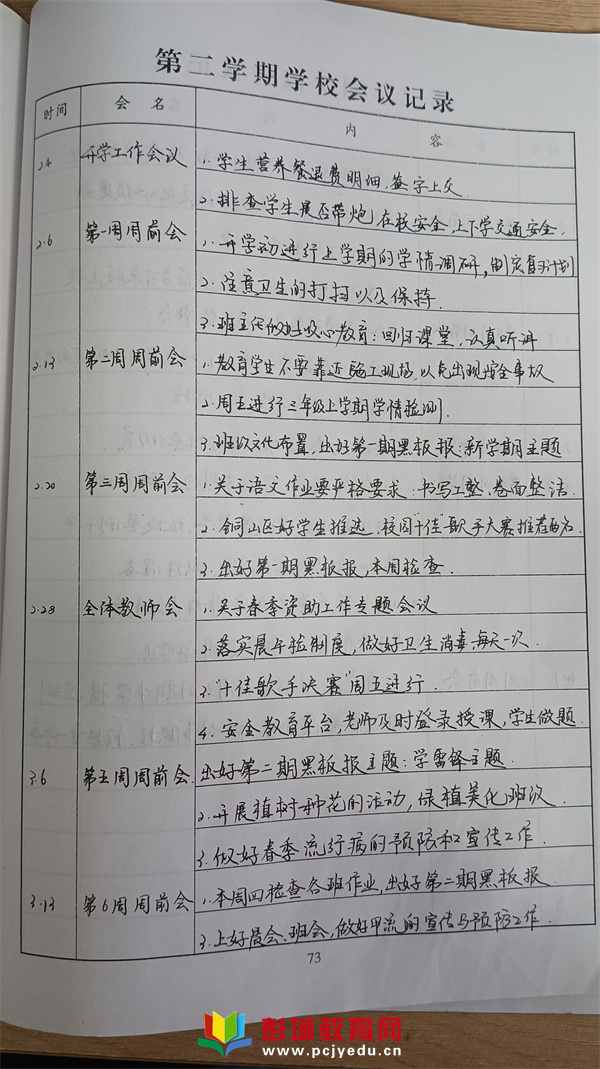 第二学期学校会议记录
时间 会名 内容
2.4 开学工作会议 1.学生营养餐退费明细,签字上交.
2.排查学生是否带炮,在校安全,上下学交通安全.
2.6 第一周周前会 1.开学初进行上学期的学情调研,制定复习计划
2.注意卫生的打扫以及保持.
3.班主任做好收心教育:回归课堂,认真听讲
2.13 第二周周前会 1.教育学生不要靠近施工现场,以免出现安全事故
2.周五进行三年级上学期学情检测.
3.班级文化布置,出好第一期黑板报:新学期主题
2.20 第三周周前会 1.关于语文作业要严格要求:书写工整,卷面整洁.
2.铜山区好学生推选,校园"十佳"歌手大赛推荐
3.出好第一期黑板报,本周检查.
2.28 全体教师会 1.关于春季资助工作专题会议
2.落实晨午检制度,做好卫生消毒每天一次.
3."十佳歌手决赛"周五进行.
4.安全教育平台,老师及时登录授课,学生做题.
3.6 第五周周前会. 出好第二期黑板报主题:学雷锋主题.
2.开展植树种花的活动,绿植美化班级.
3.做好春季流行病的预防和宣传工作.
3.13 第6周周前会 1.本周四检查各班作业,出好第二期黑板报.
3.上好晨会、班会,做好甲流的宣传与预防工作.
73
彭城教育网
www.pcjyedu.cn